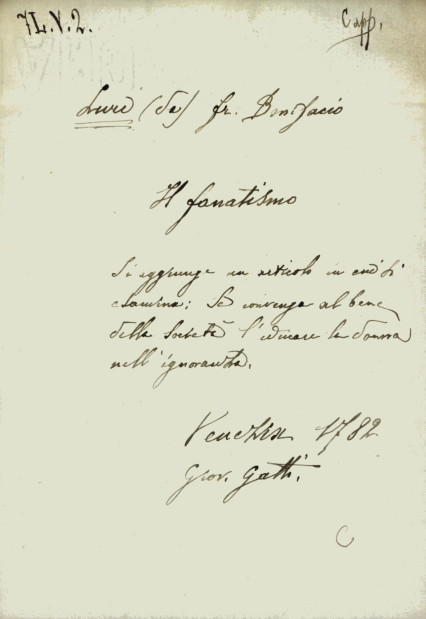 7L.V.2.
Capp.
Lurè (da) fr. Bonifacio
Il fanatismo
Si aggiunge un articolo in cui si
esamina: Se convenga al bene
della Società l'educare la donna
nell'ignoranza.
Venezia 1782
Giov. Gatti.
C